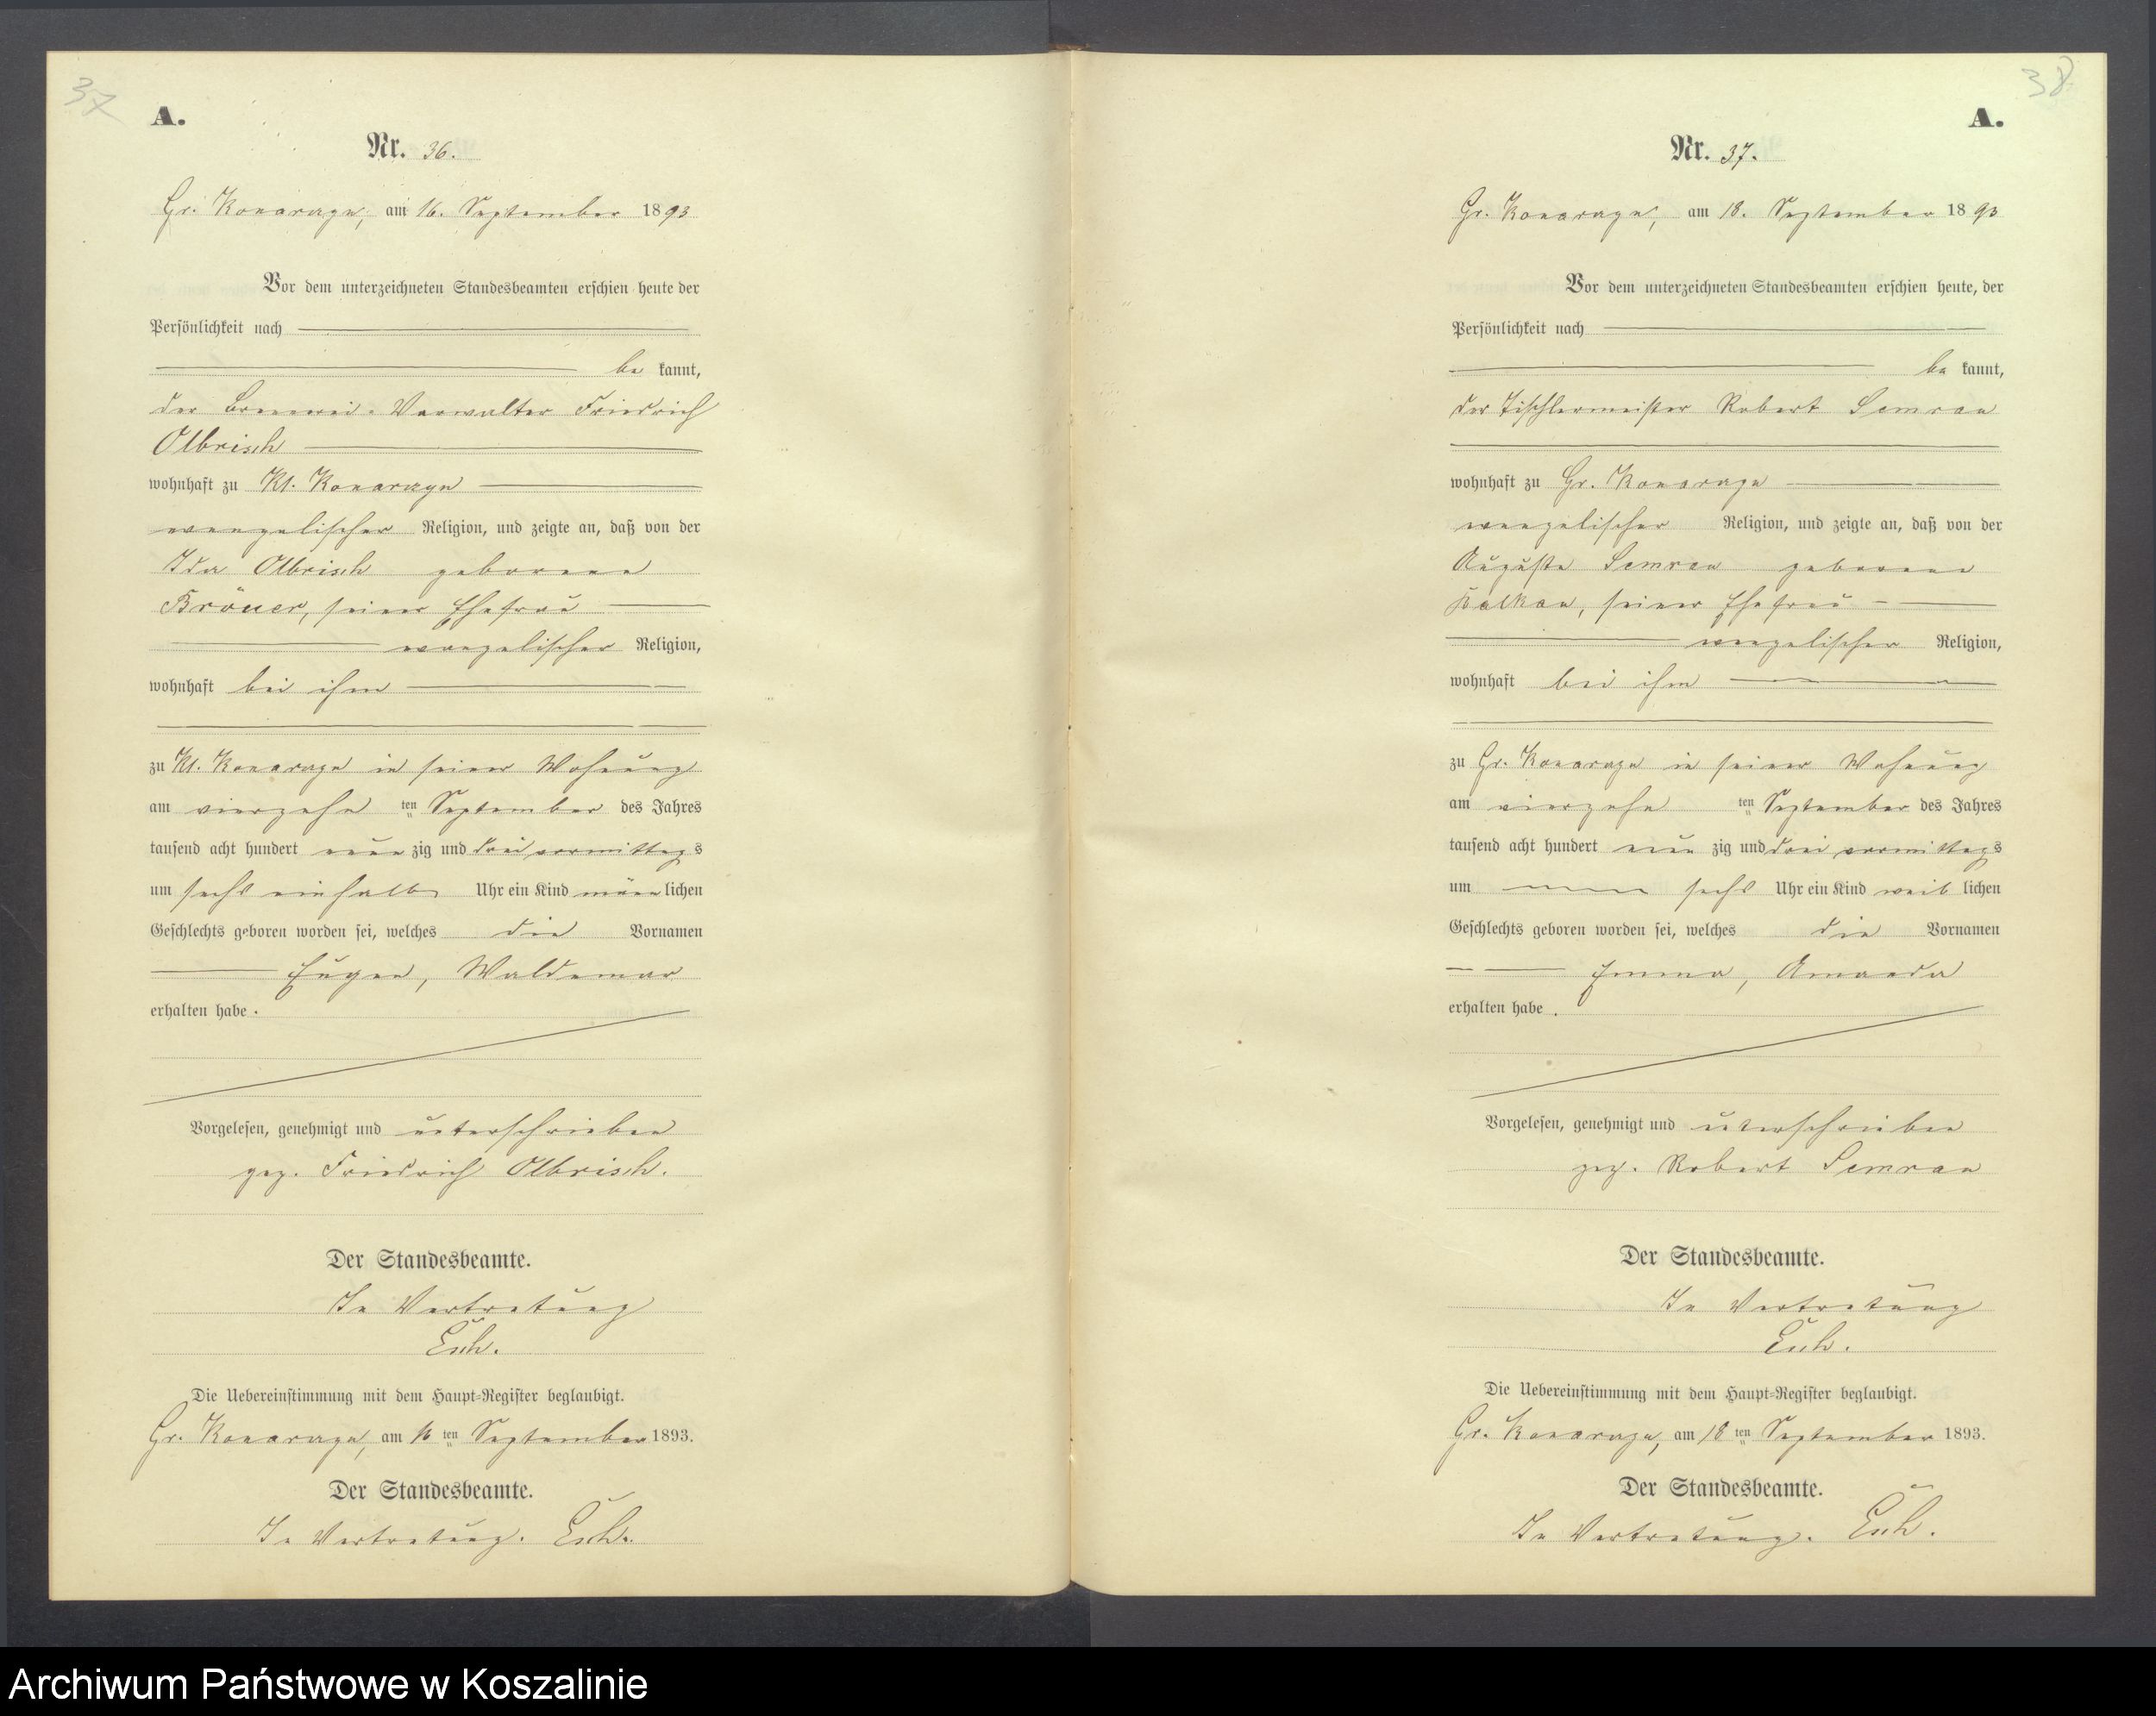 37
A.
Nr. 36.
Gr. Konarzyn, am 16. September 1893
Vor dem unterzeichneten Standesbeamten erschien heute der
Persönlichkeit nach
be kannt,
der Brennerei-Verwalter Friedrich
Olbrisch
wohnhaft zu Kl. Konarzyn
evangelischer Religion, und zeigte an, daß von der
Ida Olbrisch geborene
Bröuer, seiner Ehefrau
evangelischer Religion,
wohnhaft bei ihm
zu Kl. Konarzyn in seiner Wohnung
am vierzehn ten September des Jahres
tausend acht hundert neun zig und drei vormittags
um sechs einhalb Uhr ein Kind männ lichen
Geschlechts geboren worden sei, welches die Vornamen
Eugen, Waldemar
erhalten habe.
Vorgelesen, genehmigt und unterschrieben
gez. Friedrich Olbrisch.
Der Standesbeamte.
In Vertretung
Die Uebereinstimmung mit dem Haupt-Register beglaubigt.
Gr. Konarzyn, am 16 ten September 1893.
Der Standesbeamte.
In Vertretung.
38
A.
Nr. 37.
Gr. Konarzyn, am 18. September 1893
Vor dem unterzeichneten Standesbeamten erschien heute, der
Persönlichkeit nach
be kannt,
der Tischlermeister Robert Semrau
wohnhaft zu Gr. Konarzyn
evangelischer Religion, und zeigte an, daß von der
Auguste Semrau geborene
seiner Ehefrau
evangelischer Religion,
wohnhaft bei ihm
zu Gr. Konarzyn in seiner Wohnung
am vierzehn ten September des Jahres
tausend acht hundert neun zig und drei vormittags
um sechs Uhr ein Kind weib lichen
Geschlechts geboren worden sei, welches die Vornamen
Emma, Amanda
erhalten habe.
Vorgelesen, genehmigt und unterschrieben
gez. Robert Semrau
Der Standesbeamte.
In Vertretung
Die Uebereinstimmung mit dem Haupt-Register beglaubigt.
Gr. Konarzyn, am 18 ten September 1893.
Der Standesbeamte.
In Vertretung.
Archiwum Państwowe w Koszalinie